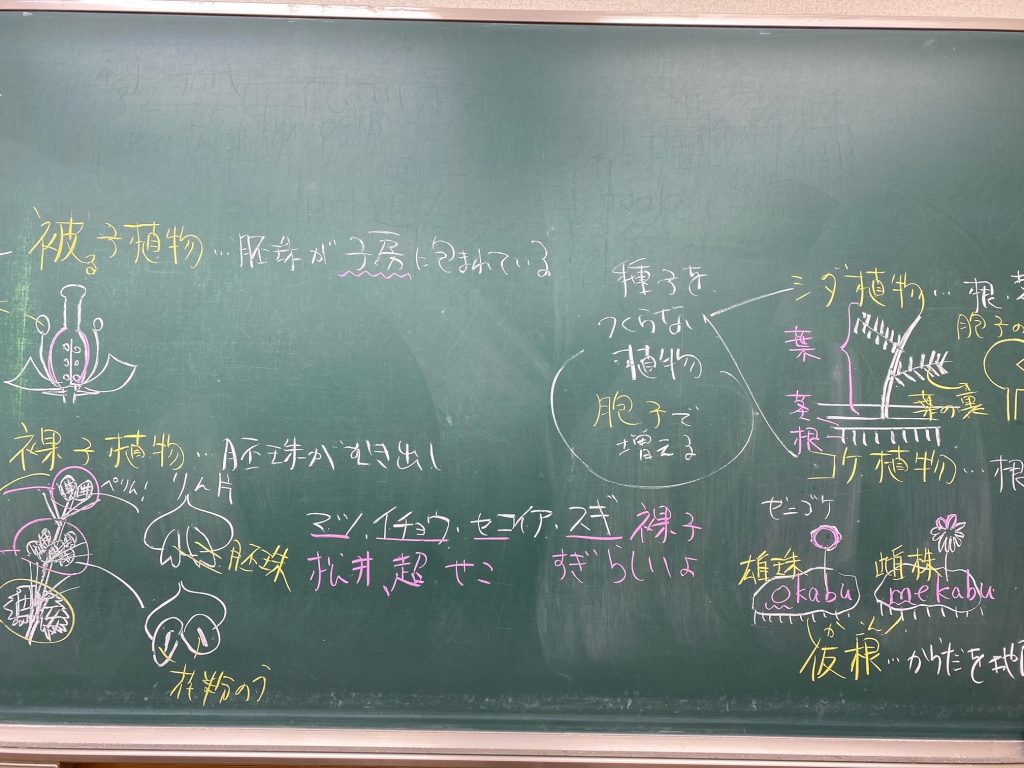 被る子植物…胚珠が子房に包まれている
裸子植物…胚珠がむき出し
ぺりん!
りん片
胚珠
花粉のう
マツ・イチョウ・セコイア・スギ 裸子
松井、超 せこ すぎ らしいよ
種子を
つくらない
植物
胞子で
増える
シダ植物…根・茎
葉
茎
根
胞子の
葉の裏
コケ植物…根
ゼニゴケ
雄株
okabu
雌株
mekabu
かこん
仮根…からだを地面